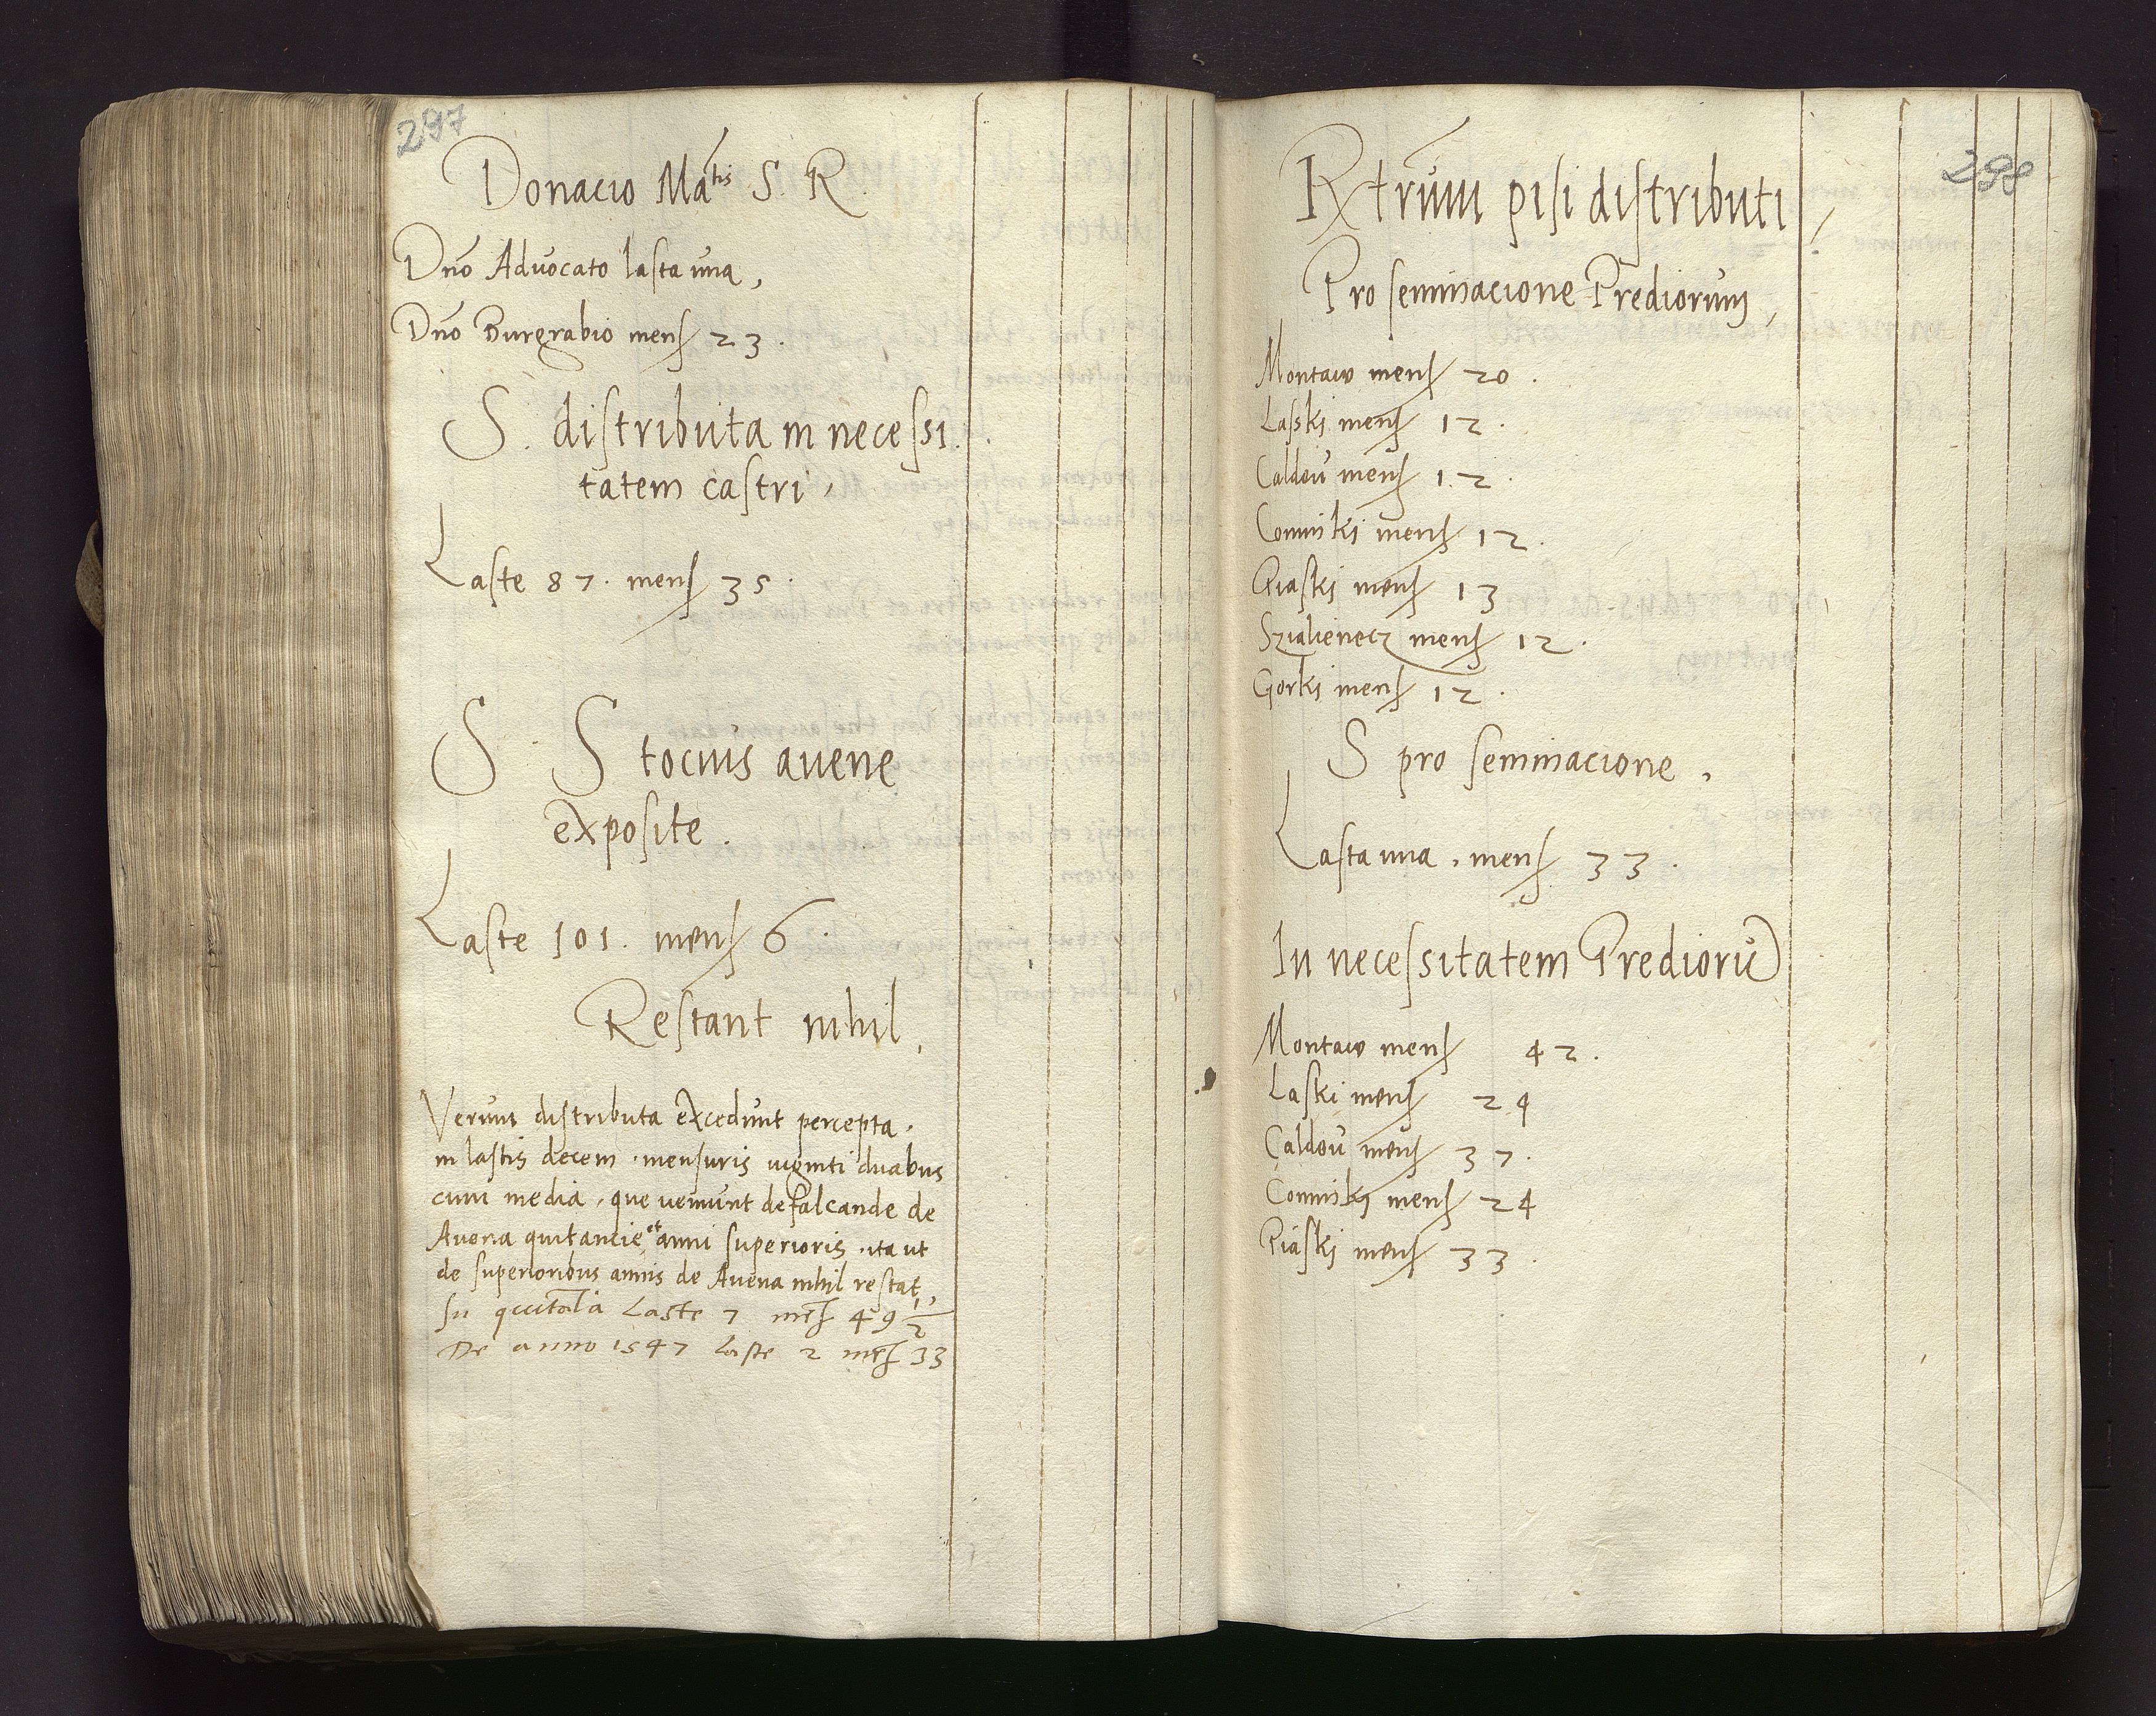 297
Donacio Ma^tis S. R.
Dno Advocato lasta una,
Dno Burgrabio mens 23.
S. distributa in necessi
tatem castri,
Laste 87. mens 35.
S S tocius avene
exposite.
Laste 101. mens 6.
Restant nihil,
Verum distributa excedunt percepta.
in lastis decem. mensuris viginti duabus
cum media, que veniunt defalcande de
Avena quitancie et anni superioris. ita ut
de superioribus annis de Avena nihil restat,
In quitatia Laste 7 mes 49 1/2
De anno 1547 laste 2 mes 33
298
Rxtrum pisi distributi,
Pro seminacione Prediorum,
Montaw mens 20.
Lasski mens 12.
Caldou mens 12.
Comniki mens 12.
Piaski mens 13
Szialienecz mens 12.
Gorki mens 12.
S pro seminacione,
Lasta una, mens 33.
In necessitatem Prediorū
Montaw mens 42.
Laski mens 24
Caldou mens 37.
Comniki mens 24
Piaski mens 33.